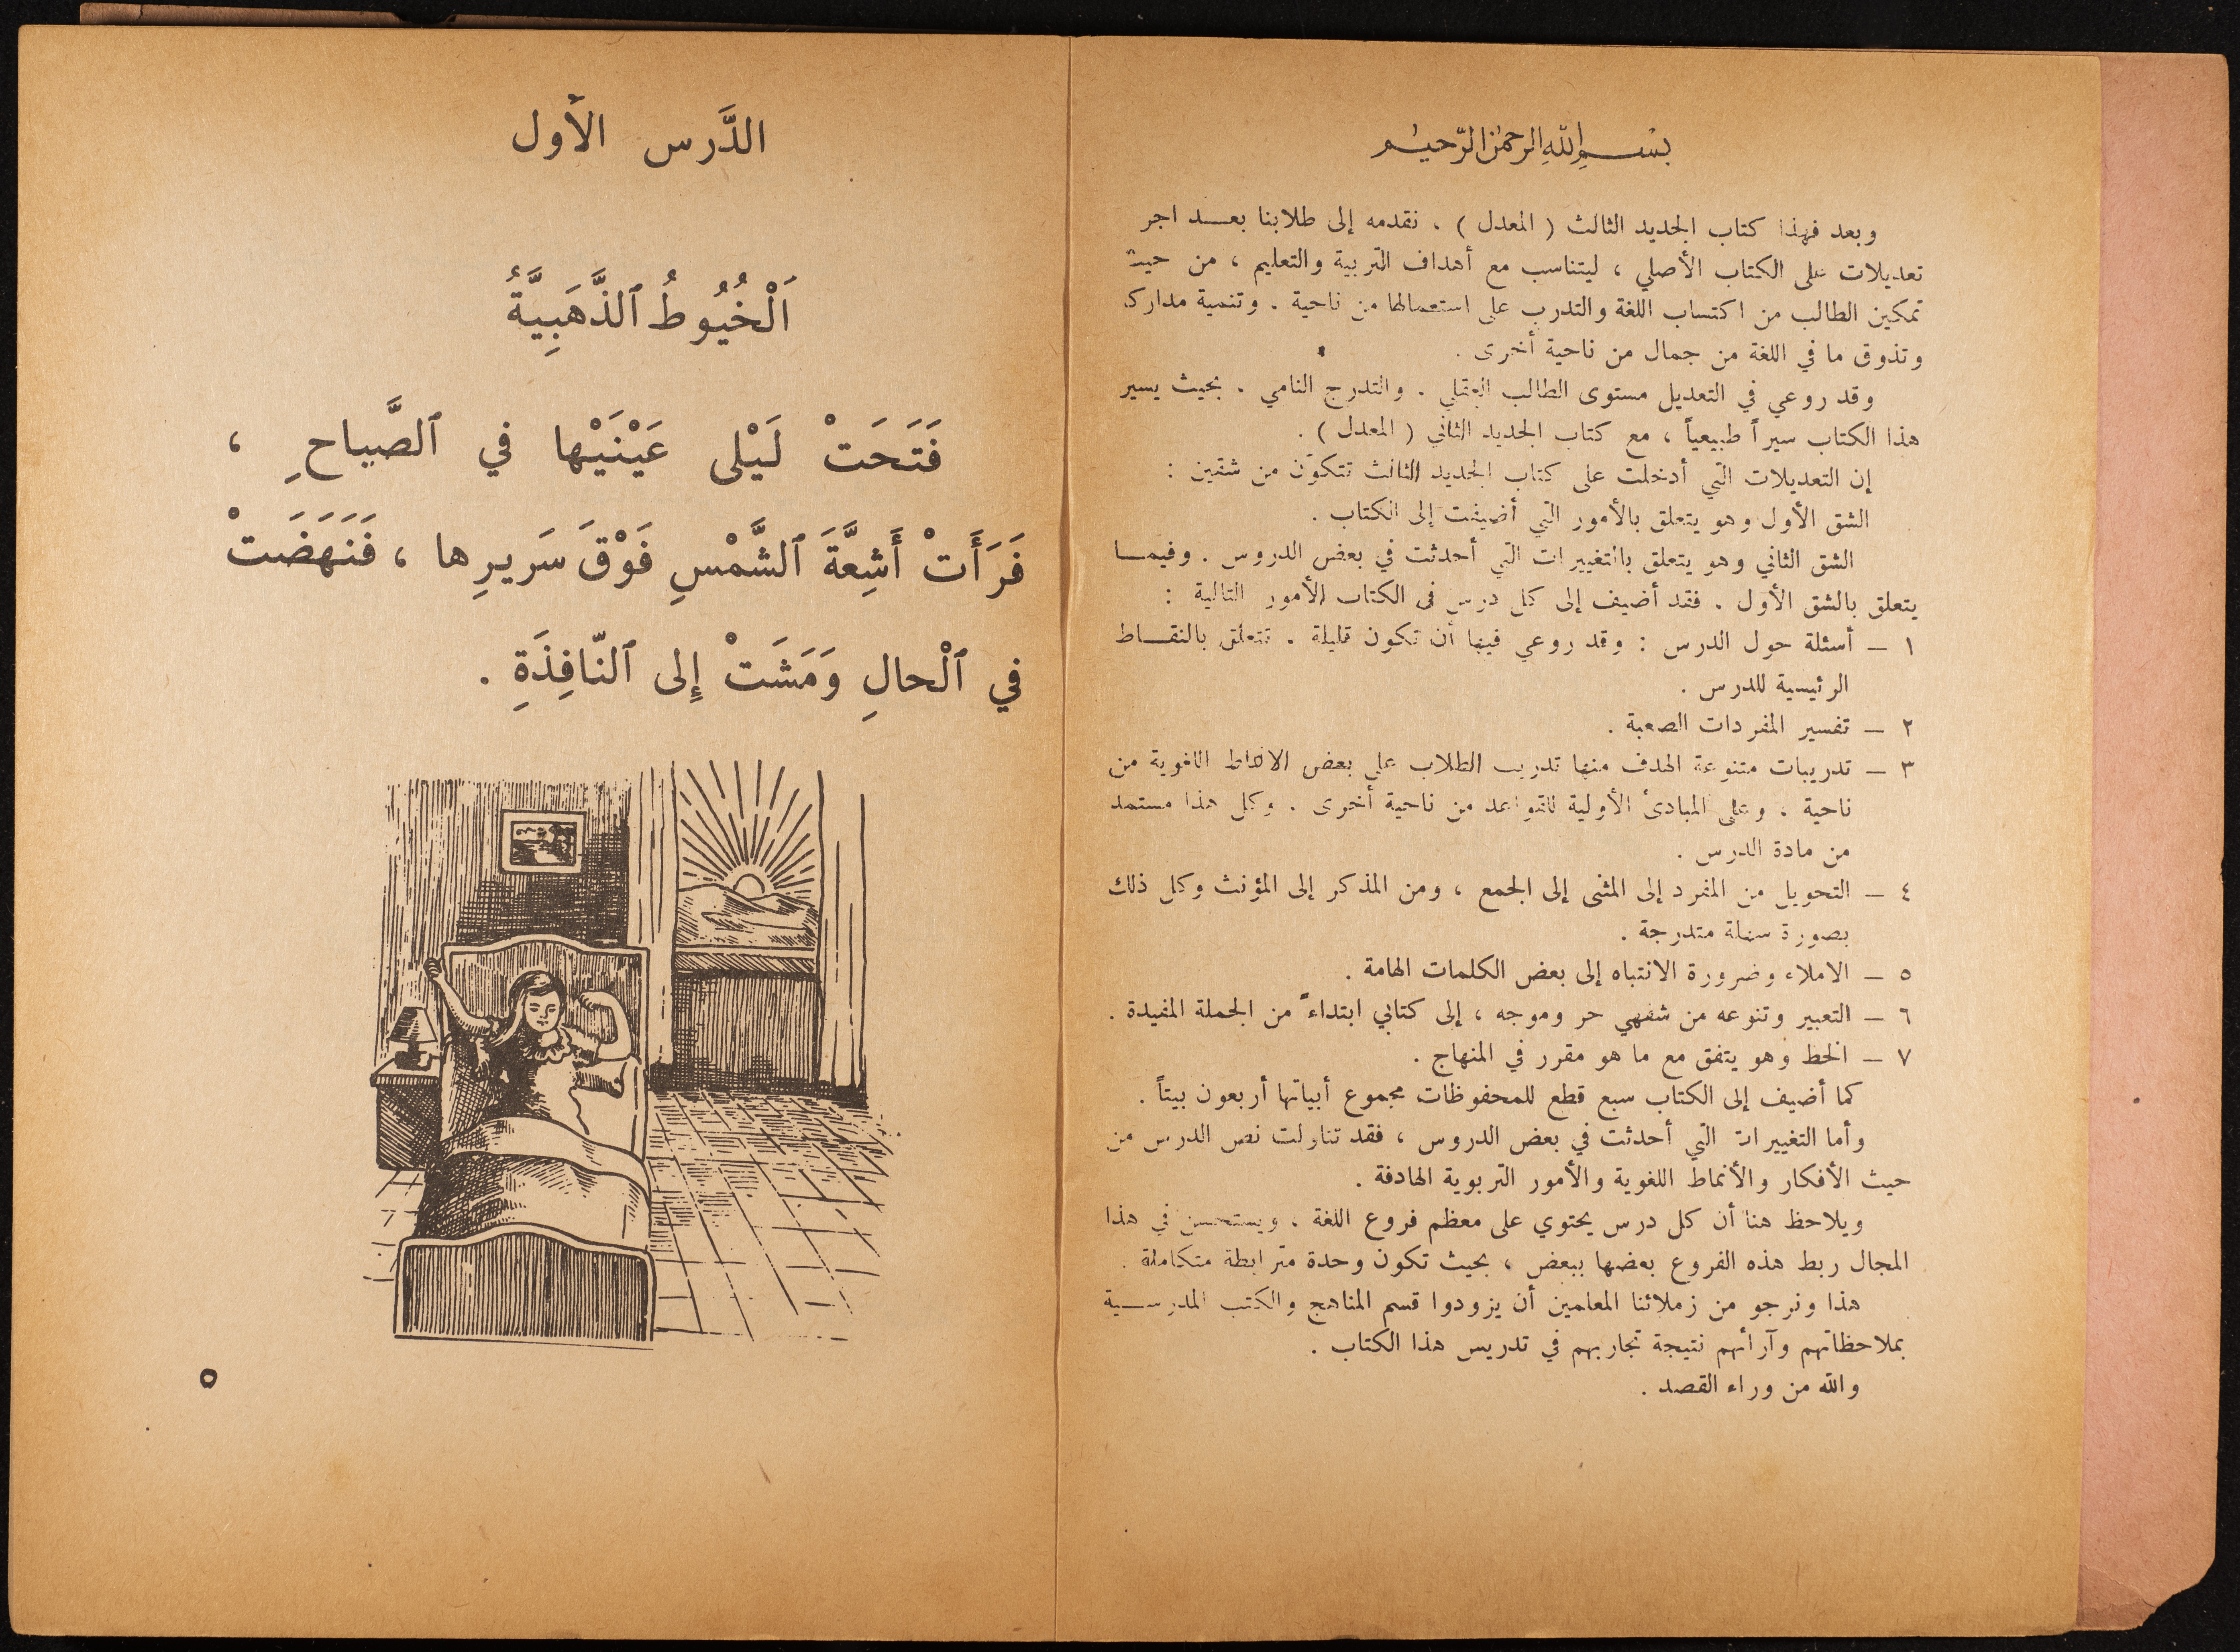 بسم الله الرحمن الرحيم
وبعد فهذا كتاب الجديد الثالث ( المعدل ) ، نقدمه إلى طلابنا بعـــد اجر
تعديلات على الكتاب الأصلي ، ليتناسب مع أهداف التربية والتعليم ، من حيث
تمكين الطالب من اكتساب اللغة والتدرب على استعمالها من ناحية . وتنمية مدارك
وتذوق ما في اللغة من جمال من ناحية أخرى .
وقد روعي في التعديل مستوى الطالب العقلي . والتدرج النامي . بحيث يسير
هذا الكتاب سيراً طبيعياً ، مع كتاب الجديد الثاني ( المعدل ) .
إن التعديلات التي أدخلت على كتاب الجديد الثالث تتكوّن من شقين :
الشق الأول وهو يتعلق بالأمور التي أضيفت إلى الكتاب .
الشق الثاني وهو يتعلق بالتغييرات التي أحدثت في بعض الدروس . وفيمـــا
يتعلق بالشق الأول . فقد أضيف إلى كل درس في الكتاب الأمور التالية :
١ ـ أسئلة حول الدرس : وقد روعي فيها أن تكون قليلة . تتعلق بالنقـــاط
الرئيسية للدرس .
٢ ـ تفسير المفردات الصعبة .
٣ ـ تدريبات متنوعة الهدف منها تدريب الطلاب على بعض الانماط اللغوية من
ناحية . وعلى المبادئ الأولية للقواعد من ناحية أخرى . وكل هذا مستمد
من مادة الدرس .
٤ ـ التحويل من المفرد إلى المثنى إلى الجمع ، ومن المذكر إلى المؤنث وكل ذلك
بصورة سهلة متدرجة .
٥ ـ الاملاء وضرورة الانتباه إلى بعض الكلمات الهامة .
٦ ـ التعبير وتنوعه من شفهي حر وموجه ، إلى كتابي ابتداءً من الجملة المفيدة .
٧ ـ الخط وهو يتفق مع ما هو مقرر في المنهاج .
كما أضيف إلى الكتاب سبع قطع للمحفوظات مجموع أبياتها أربعون بيتاً .
وأما التغييرات التي أحدثت في بعض الدروس ، فقد تناولت نص الدرس من
حيث الأفكار والأنماط اللغوية والأمور التربوية الهادفة .
ويلاحظ هنا أن كل درس يحتوي على معظم فروع اللغة ، ويستحسن في هذا
المجال ربط هذه الفروع بعضها ببعض ، بحيث تكون وحدة مترابطة متكاملة .
هذا ونرجو من زملائنا المعلمين أن يزودوا قسم المناهج والكتب المدرســـية
بملاحظاتهم وآرائهم نتيجة تجاربهم في تدريس هذا الكتاب .
والله من وراء القصد .
الدَّرس الأول
اَلْخُيُوطُ ٱلذَّهَبِيَّةُ
فَتَحَتْ لَيْلى عَيْنَيْها في ٱلصَّباحِ ،
فَرَأَتْ أَشِعَّةَ ٱلشَّمْسِ فَوْقَ سَريرِها ، فَنَهَضَتْ
في ٱلْحالِ وَمَشَتْ إِلى ٱلنّافِذَةِ .
٥